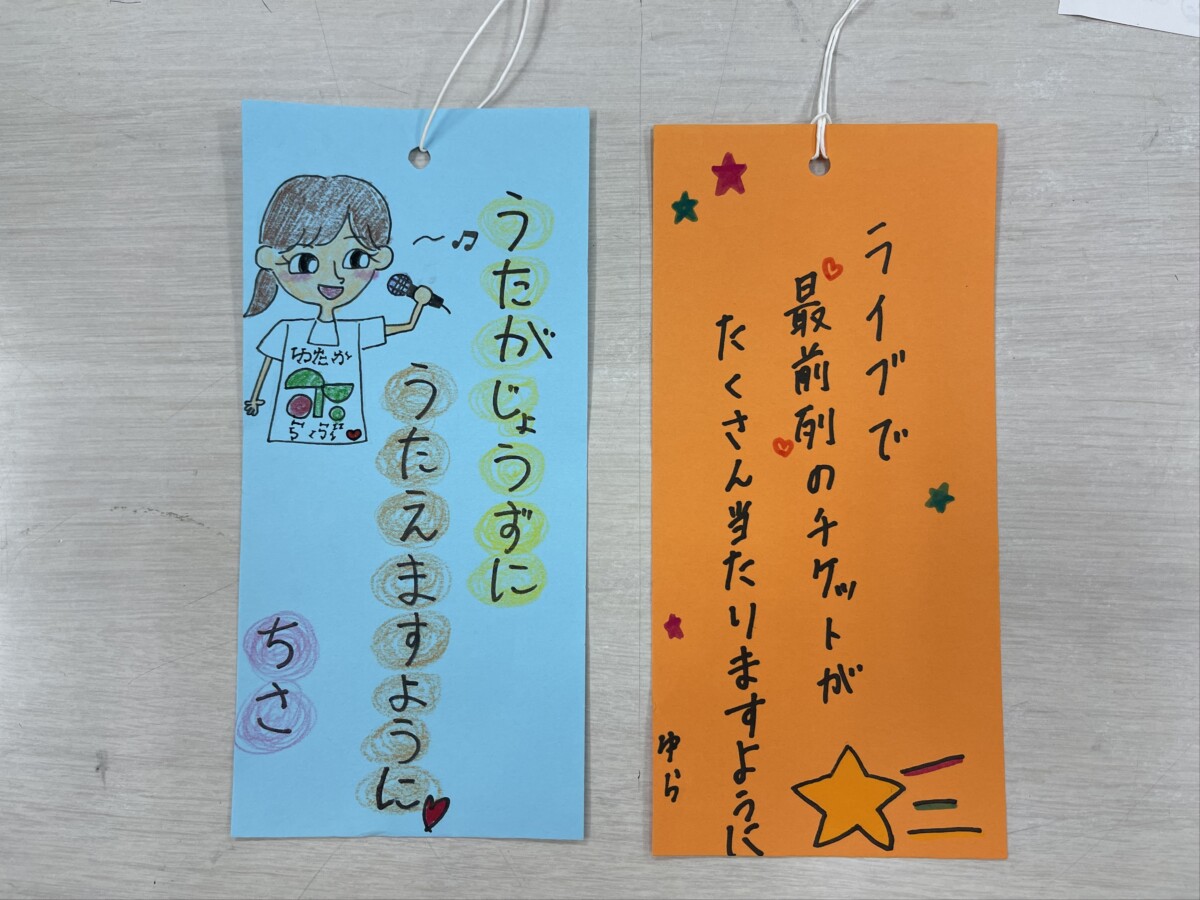 うたがじょうずに
うたえますように
ちさ
わたが
ライブで
最前列のチケットが
たくさん当たりますように
ゆら